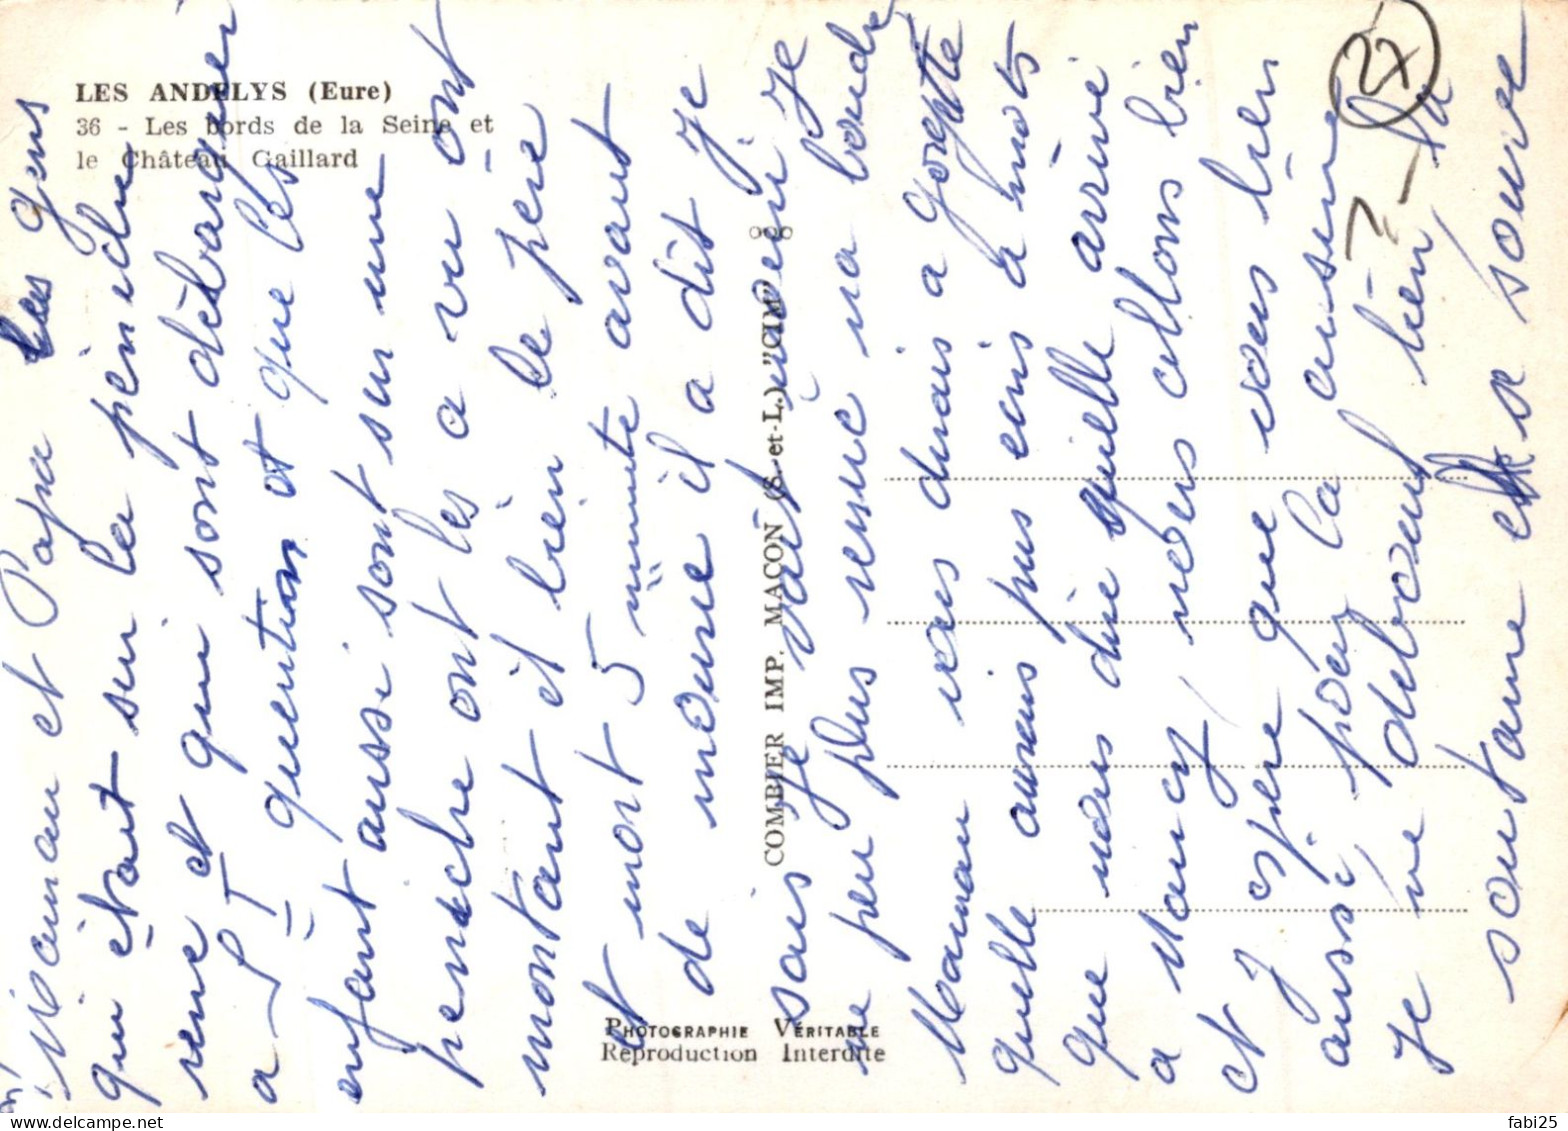 LES ANDELYS (Eure)
36 - Les bords de la Seine et
le Château Gaillard
COMBIER IMP. MACON (S-et-L.) "CIM"
PHOTOGRAPHIE VÉRITABLE
Reproduction Interdite
27
?
Maman et Papa les gens
qui étant sur la péniche
reme et qui sont débarquer
a S T quentin et que les
enfant aussi sont sur une
peniche ont les a vu ont
montant et bien le père
et mort 5 minute avant
de mourir il a dit je
sais je vait mouri je
ne peu plus
Maman vous dirais a
quelle aurais pas ecris a mots
que nous dire quelle arrivé
a Nancy, nous allons bien
et J espere que vous bien
aussi pour la
Je ve debrouf bien la
soutane et sa soure
delcampe.net
fabi25